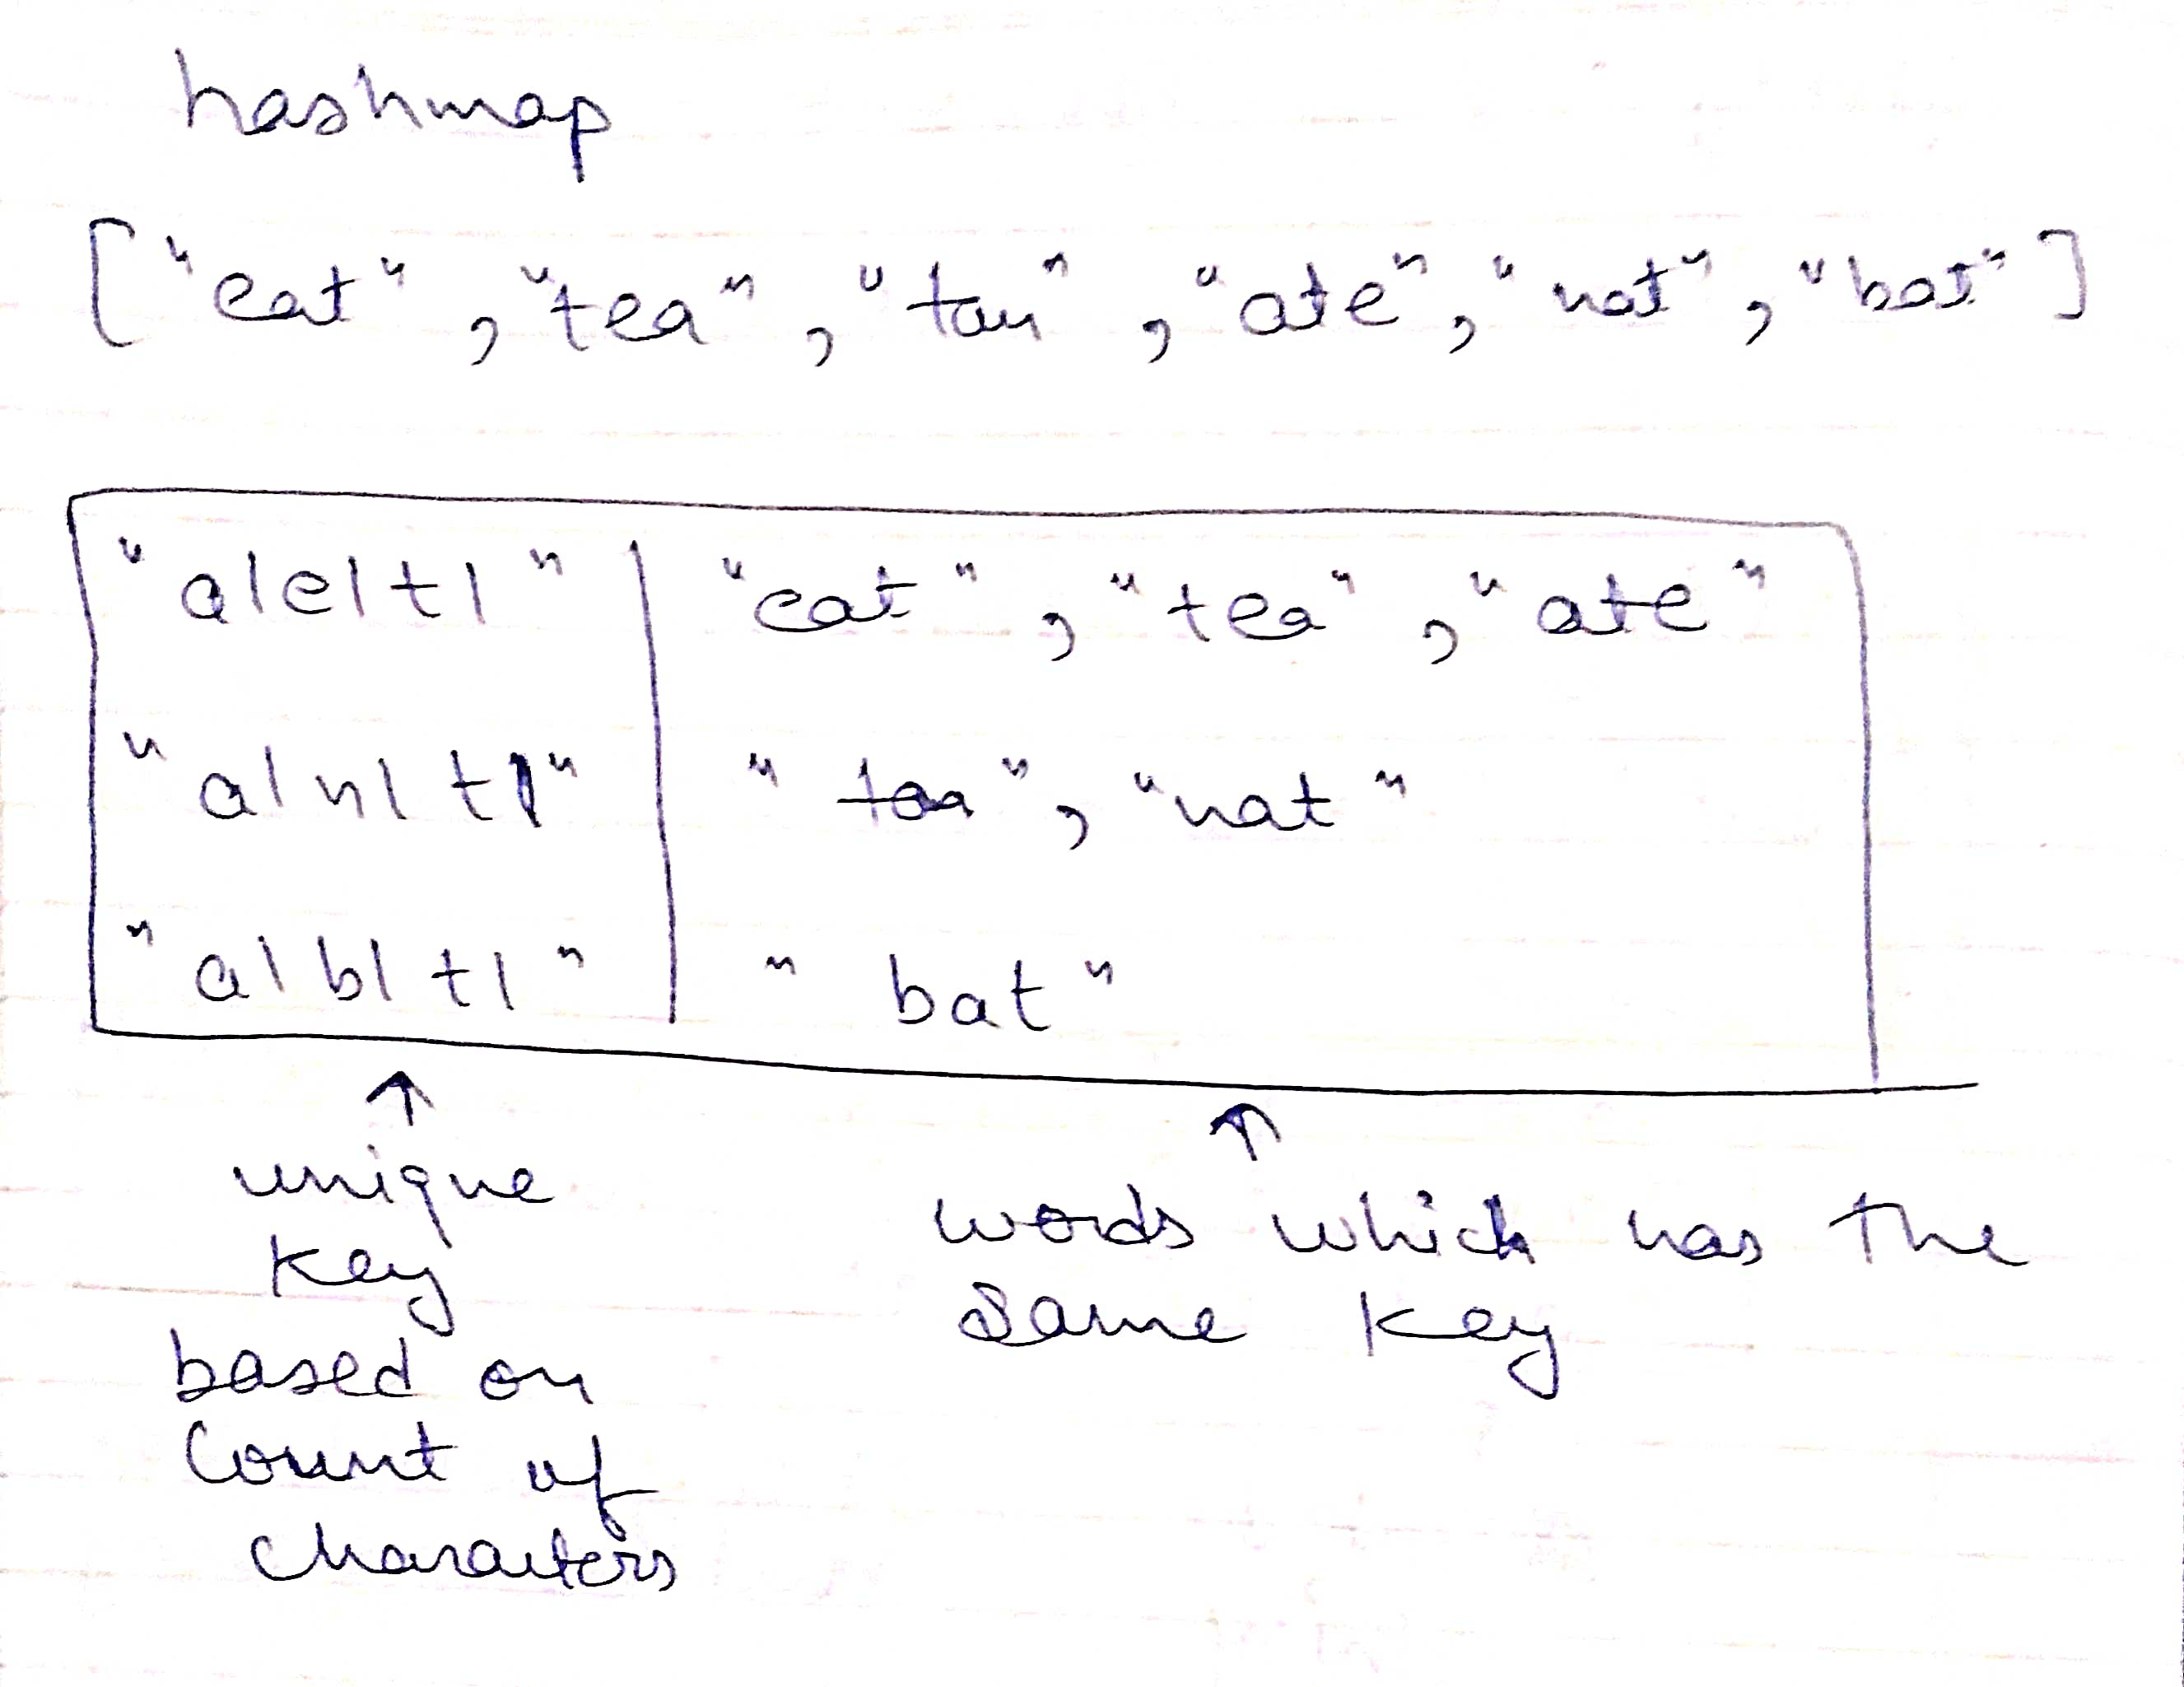 hashmap
["eat", "tea", "tan", "ate", "nat", "bat"]
"a1e1t1" "eat", "tea", "ate"
"a1n1t1" "tan", "nat"
"a1b1t1" "bat"
unique
key
based on
count of
characters
words which has the
same key